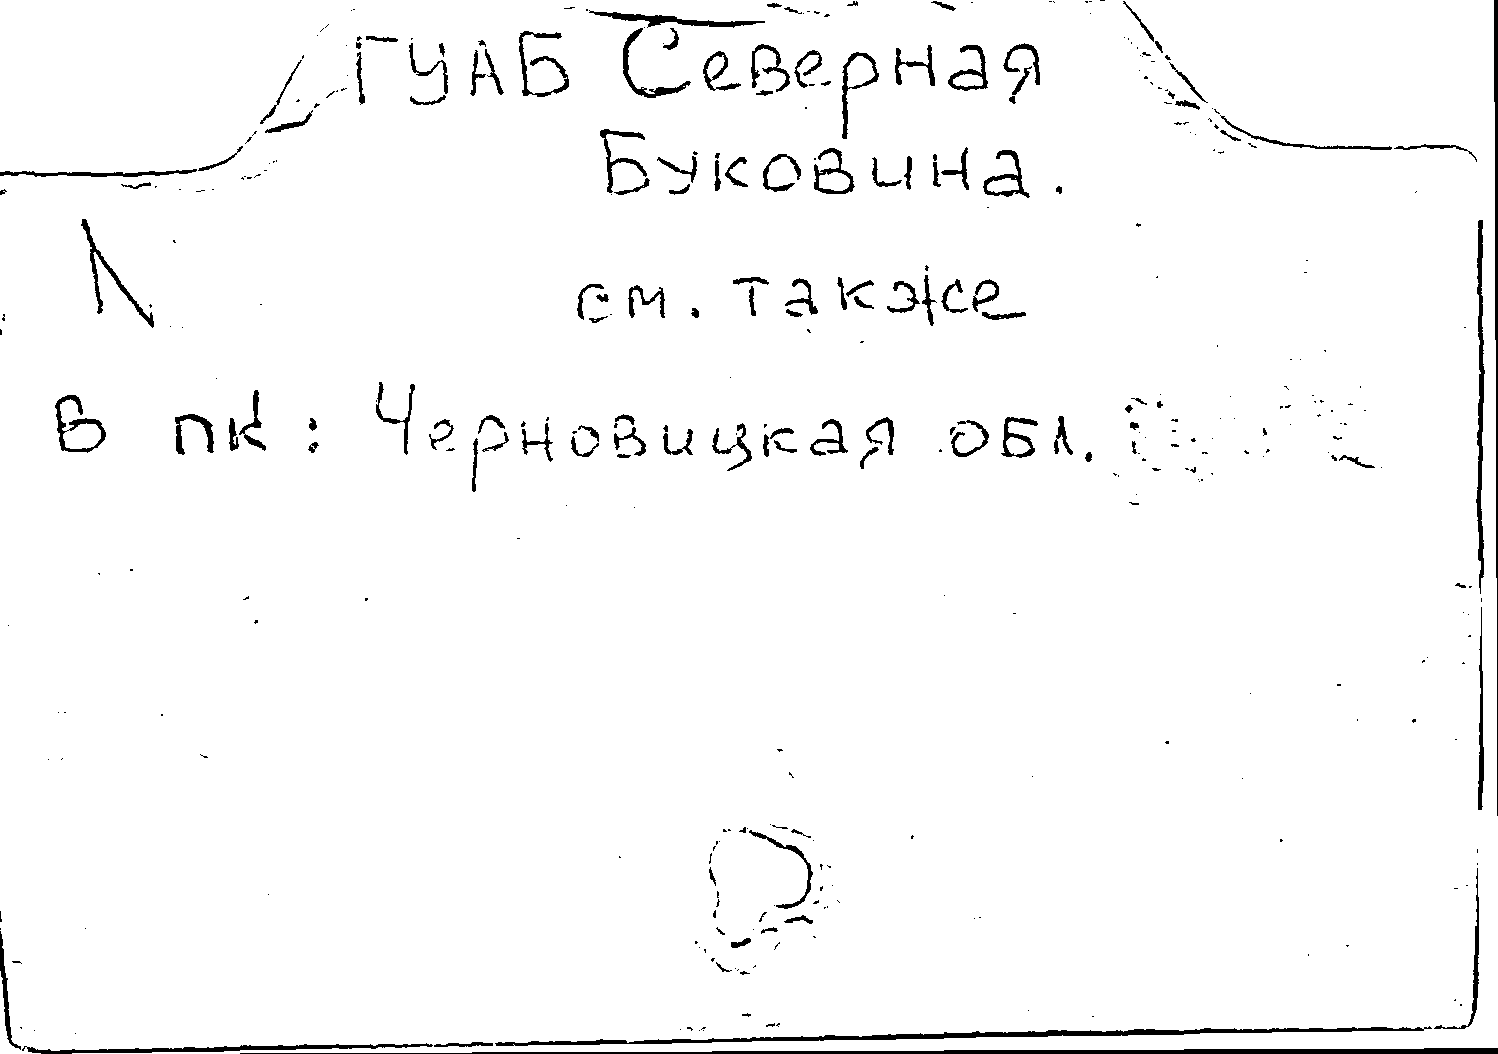 ГУАБ Северная
Буковина.
см. также
в пк: Черновицкая обл.